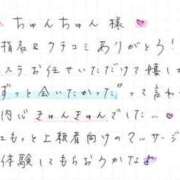 ちゅんちゅん 様
指名&クチコミ ありがとう!
ステ お任せいただけて嬉し
ずっと会いたかった。って言わ
内にきゅんきゅんでした…
もっと上級者向けのマッサージ
体験してもらおうかな